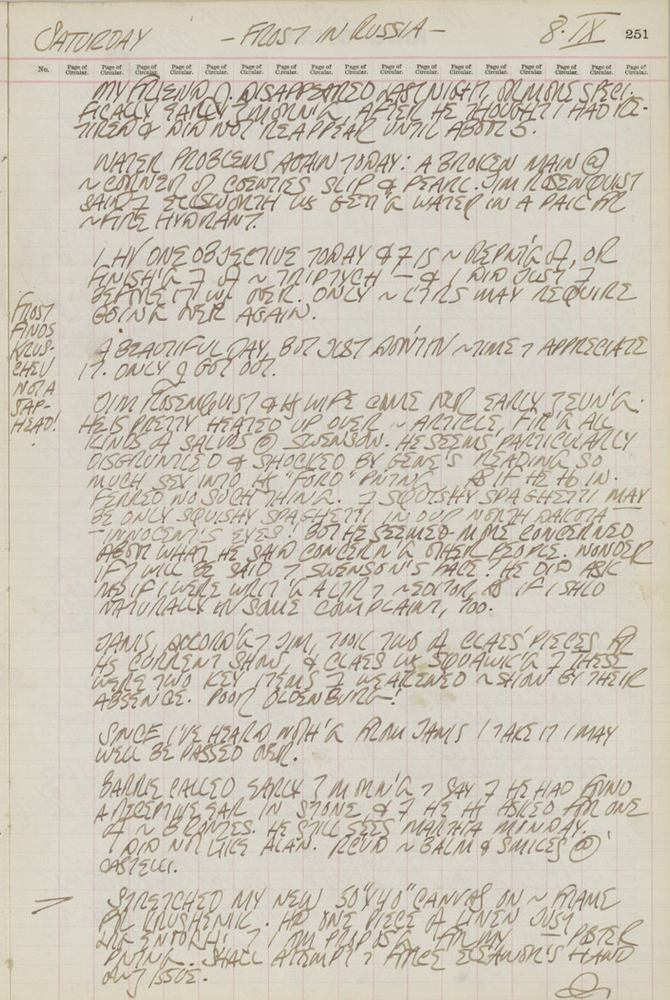 SATURDAY — FROST IN RUSSIA — 8·IX 251
No. Page of Circular. Page of Circular. Page of Circular. Page of Circular. Page of Circular. Page of Circular. Page of Circular. Page of Circular. Page of Circular. Page of Circular. Page of Circular. Page of Circular. Page of Circular. Page of Circular. Page of Circular. Page of Circular.
MY FRIEND DISAPPEARED LAST NIGHT, OR MORE SPECI-
FICALLY EARLY MORN'G, AFTER HE THOUGHT I HAD RE-
TIRED & DID NOT REAPPEAR UNTIL ABOUT 5.
WATER PROBLEMS AGAIN TODAY: A BROKEN MAIN @
~ CORNER OF COENTIES SLIP & PEARL. JIM ROSENQUIST
SAID ELLSWORTH WS GETT'G WATER IN A PAIL FR
~ FIRE HYDRANT.
I HV ONE OBJECTIVE TODAY & IS ~ OF, OR
FINISH'G OF ~ TRIPTYCH — & I DID JUST
BEFORE IT WS OVER. ONLY ~ LTRS MAY REQUIRE
GOING OVER AGAIN.
FROST
FINDS
KRUS-
CHEV
NOT A
SAP-
HEAD!
A BEAUTIFUL DAY, BUT JUST DIDN'T HV ~ TIME T APPRECIATE
IT. ONLY GOT OUT.
JIM ROSENQUIST & HS WIFE CAME OVER EARLY T EVN'G.
HE IS PRETTY HEATED UP OVER ~ ARTICLE, FIR'G ALL
KINDS OF SALVOS @ SWENSON. HE SEEMS PARTICULARLY
DISGRUNTLED & SHOCKED BY GENE'S READING SO
MUCH SEX INTO HS "FORD" PNTNG. AS IF HE HD IN-
FERRED NO SUCH THING. SQUISHY SPAGHETTI MAY
BE ONLY SQUISHY SPAGHETTI IN OUR NORTH DAKOTA
INNOCENT'S EYES! BUT HE SEEMED MORE CONCERNED
ABOUT WHAT HE SAID CONCERN'G OTHER PEOPLE. WONDER
IF WILL BE SAID T SWENSON'S FACE? HE DID ASK
ME IF I WERE WRIT'G A LTR T ~ EDITOR, AS IF I SHLD
NATURALLY HV SOME COMPLAINT, TOO.
JANIS, ACCORD'G T JIM, TOOK TWO OF CLAES' PIECES FR
HS CURRENT SHOW, & CLAES WS SQUAWK'G THESE
WERE TWO KEY ITEMS WEAKENED ~ SHOW BY THEIR
ABSENCE. POOR OLDENBURG!
SINCE I'VE HEARD NOTH'G FROM JANIS I TAKE IT I MAY
WELL BE PASSED OVER.
BARRIE CALLED EARLY MORN'G T SAY HE HAD FOUND
A RECEPTIVE EAR IN STONE & HE HD ASKED FR ONE
OF ~ BRONZES. HE STILL SEES MARTHA MONDAY.
DID NOT LIKE ALAN. RCVD ~ BALM & SMILES @
CASTELLI.
STRETCHED MY NEW 50"X40" CANVAS ON ~ FRAME
FR KRUSHENIK. HD ONE PIECE OF LINEN JUST
ENOUGH! I AM PROPOS'G FR MY POSTER
PNTNG. SHALL ATTEMPT T FORCE ELEANOR'S HAND
ON ISSUE.